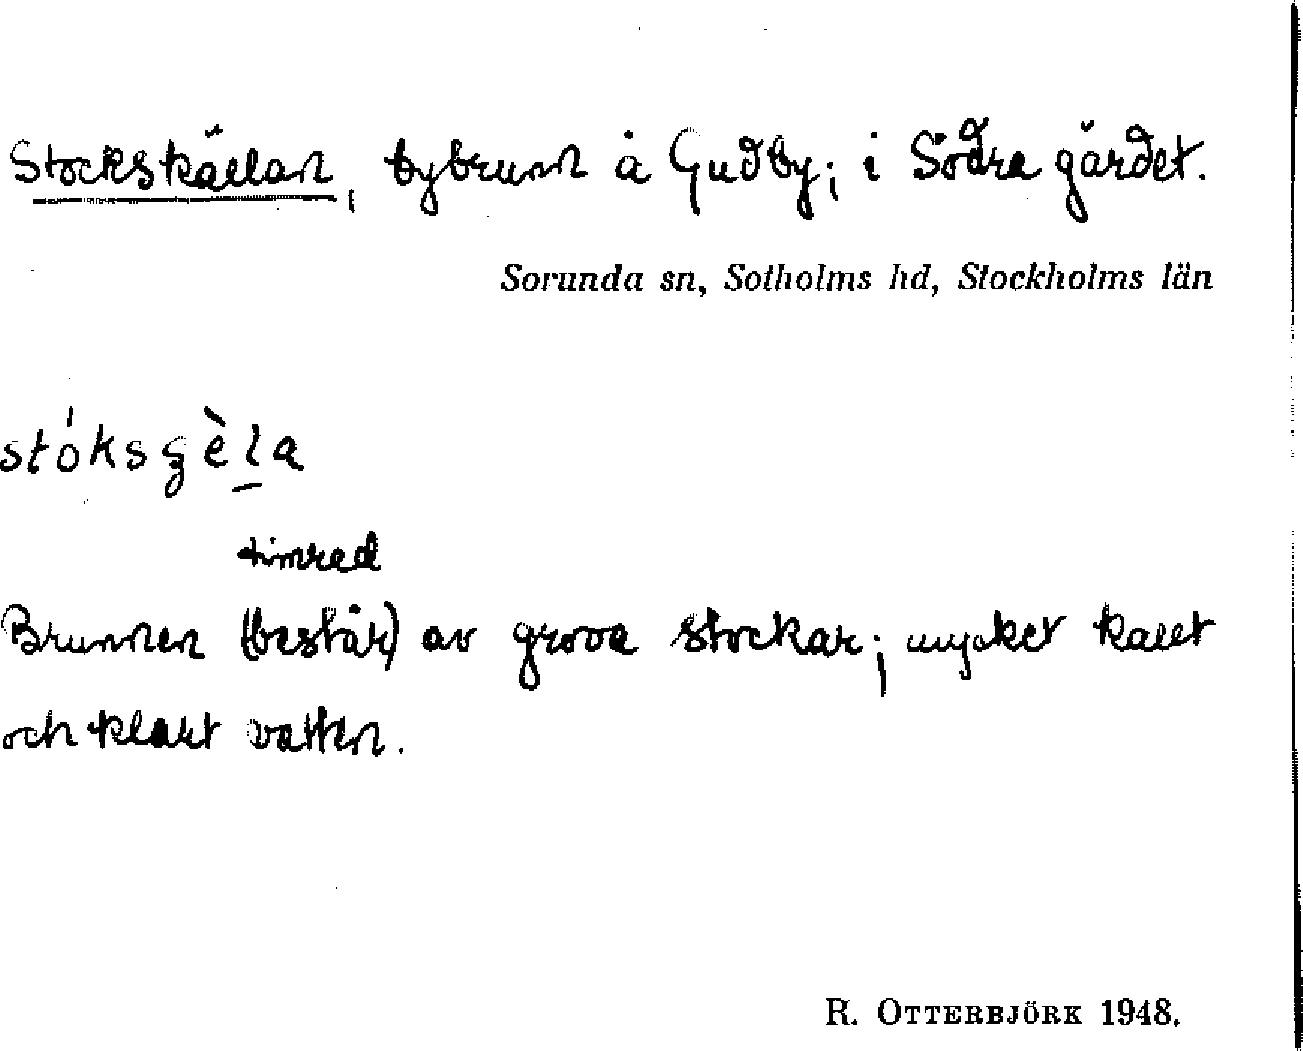 Stockskällan, bybrunn å Gudby; i Södra gärdet.
Sorunda sn, Sotholms hd, Stockholms län
stóksʒèla
timrad
Brunnen (består) av grova stockar; mycket kallt
och klart vatten.
R. OTTERBJÖRK 1948.